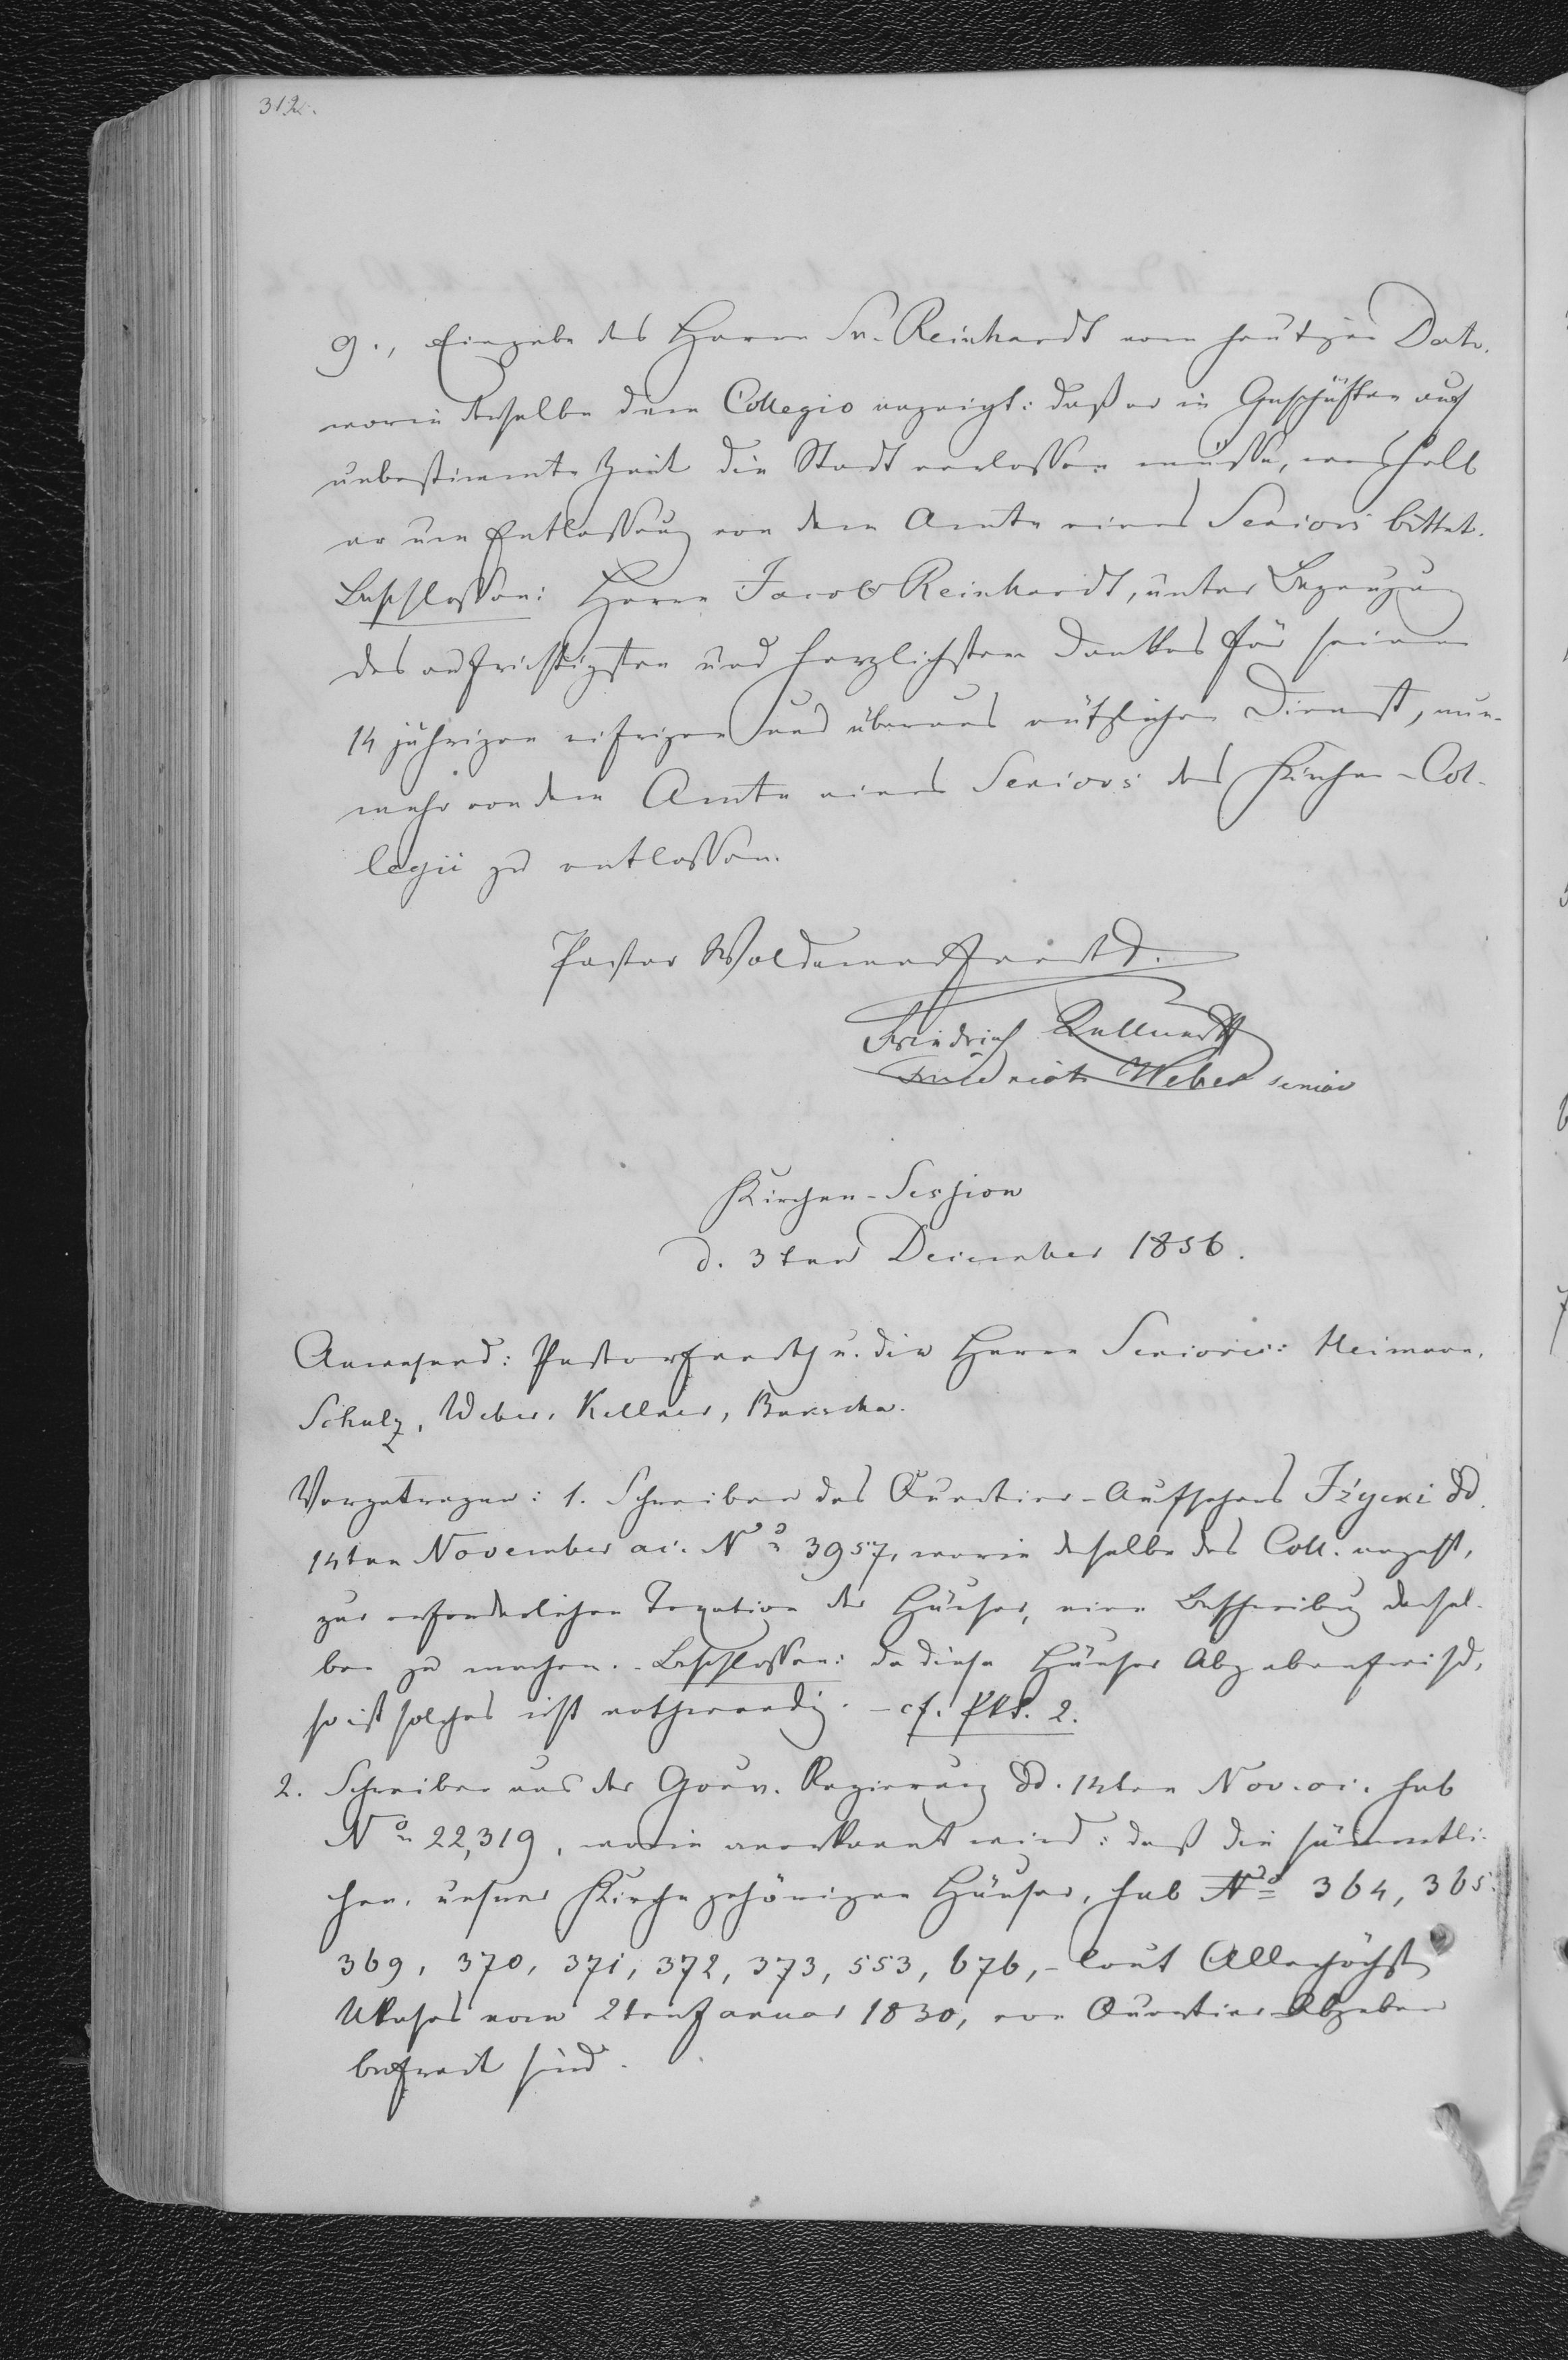 312.
9., Eingabe des Herrn Sn. Reinhardt vom heutigen Dato,
worin derselbe dem Collegio anzeigt: daß er in Geschäften auf
unbestimmte Zeit die Stadt verlassen müsse, weshalb
er um Entlassung von dem Amte eines Seniors bittet.
Beschlossen: Herrn Jacob Reinhardt, unter Bezeugung
des aufrichtigsten und herzlichsten Dankes für seinen
14 jährigen eifrigen und überaus nützlichen Dienst, nun-
mehr von dem Amte eines Seniors des Kirchen-Col-
legii zu entlassen.
Pastor Woldemar
Friedrich
Friedrich Weber senior
Kirchen-Session
d. 3ten December 1856.
Anwesend: Pastor u. die Herrn Seniores: Heimann,
Schulz, Weber, Kellner,
Vorgetragen: 1. Schreiben des Quartier-Aufsehers Iżycki dd.
14ten November ai. No 3957, worin derselbe das Coll. angeht,
zur erforderlichen Taxation der Häuser, eine Beschreibung dersel-
ben zu machen. - Beschlossen: da diese Häuser Abgabenfrei sind,
so ist solches nicht nothwendig. - cf. Pkt. 2.
2. Schreiben aus der Gouv. Regierung dd. 14ten Nov. ai. sub
No 22,319, worin anerkannt wird: daß die sämmtli-
chen, unsrer Kirche gehörigen Häuser, sub No 364, 365,
369, 370, 371, 372, 373, 553, 676, - laut Allerhöchst
Ukases vom 2ten Januar 1830, von Quartier-Abgaben
befreit sind.